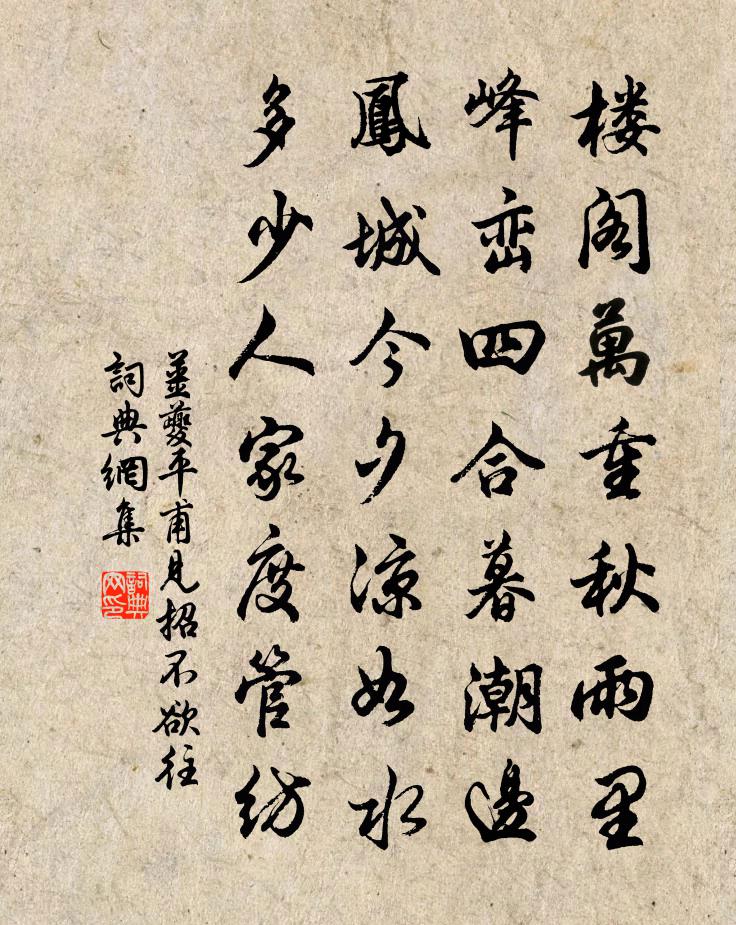 楼阁萬重秋雨里
峰峦四合暮潮邊
鳳城今夕涼如水
多少人家度管絃
薑夔平甫見招不欲往
詞典網集
詞典网印